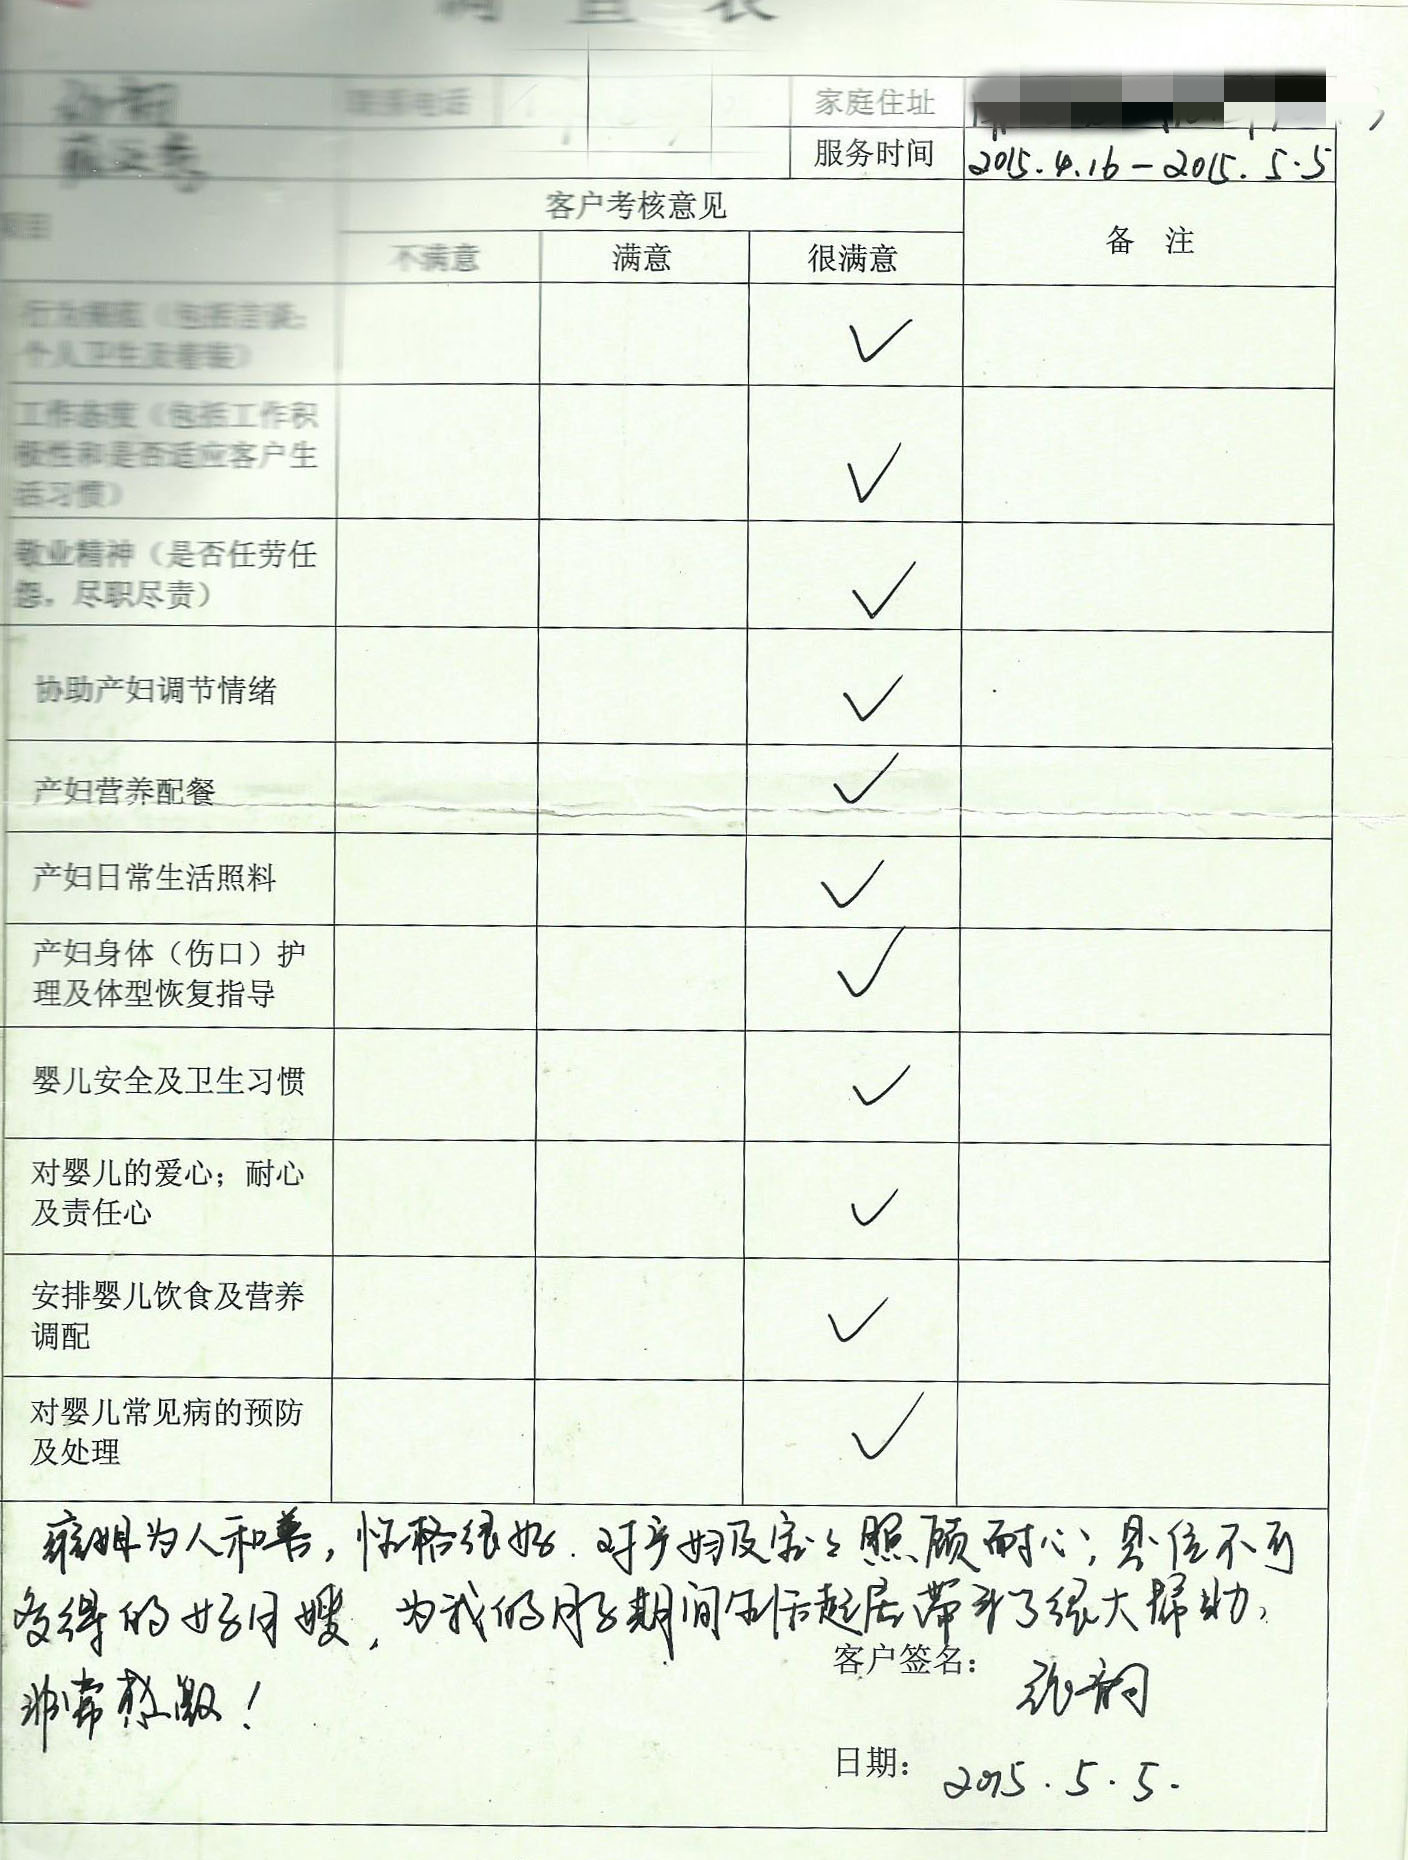 调查表
联系电话
家庭住址
服务时间
2015.4.16-2015.5.5
项目
客户考核意见
备 注
不满意
满意
很满意
行为规范（包括言谈；
个人卫生及着装）
工作态度（包括工作积
极性和是否适应客户生
活习惯）
敬业精神（是否任劳任
怨，尽职尽责）
协助产妇调节情绪
产妇营养配餐
产妇日常生活照料
产妇身体（伤口）护
理及体型恢复指导
婴儿安全及卫生习惯
对婴儿的爱心；耐心
及责任心
安排婴儿饮食及营养
调配
对婴儿常见病的预防
及处理
姐为人和善，性格很好.对产妇及宝宝照顾耐心，是位不可
多得的好月嫂，为我的月子期间生活起居带来了很大帮助，
非常感激！
客户签名：
日期：
2015.5.5.